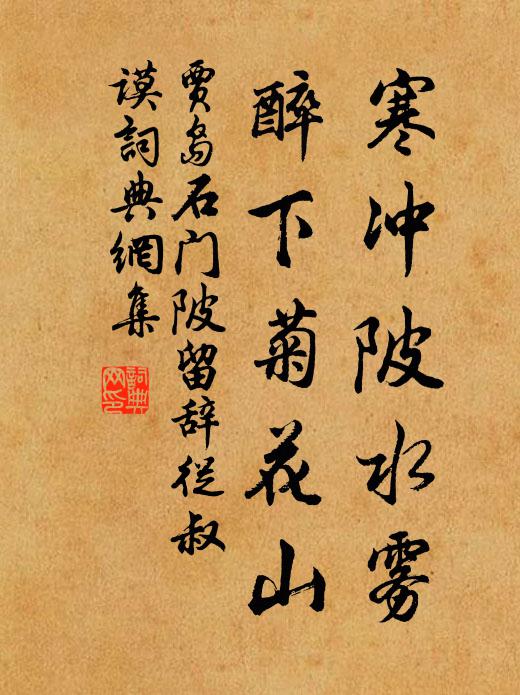 寒冲陂水雾
醉下菊花山
贾岛石门陂留辞从叔
谟词典網集
詞典
网印